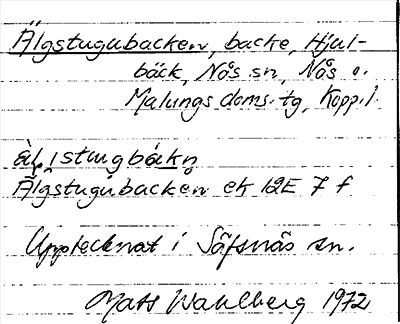 Älgstugubacken, backe, Hjul-
bäck, Nås sn, Nås o.
Malungs doms. tg, Kopp.l.
Älgstugubacken ek 12E 7 f
Upptecknat i Säfsnäs sn.
Mats Wahlberg 1972